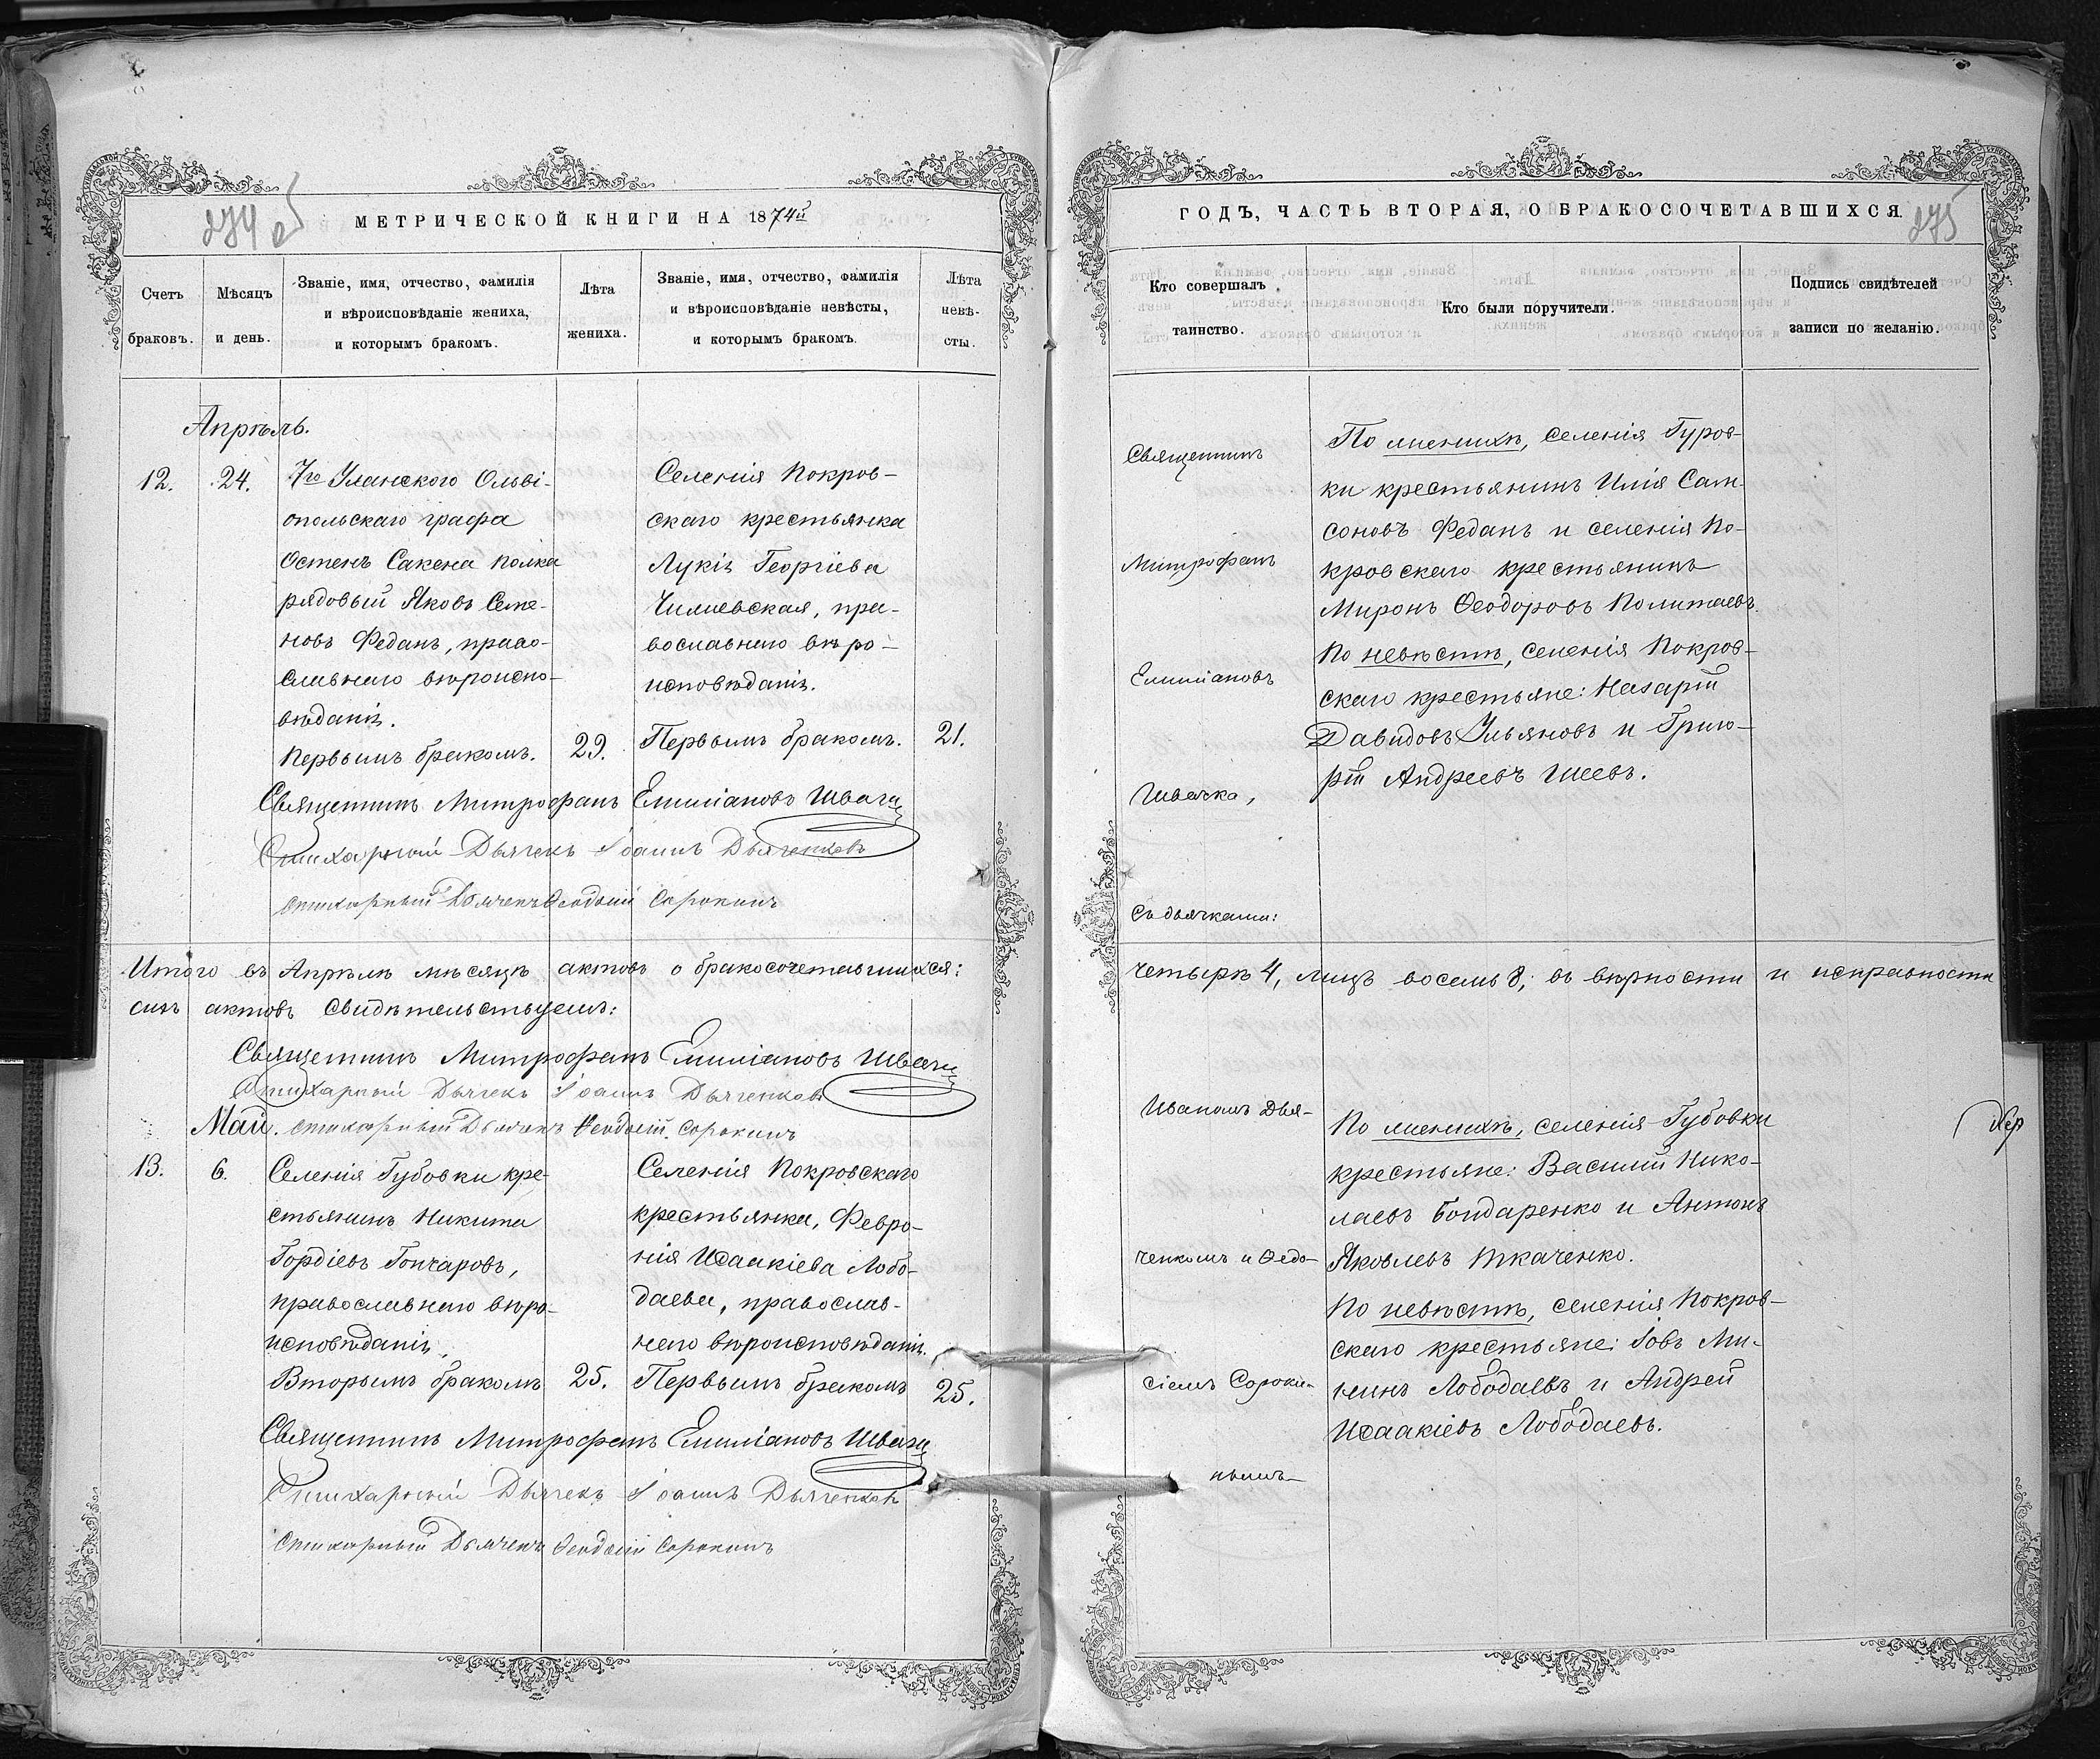 274 об
МЕТРИЧЕСКОЙ КНИГИ НА 1874й
Счетъ
браковъ.
Мѣсяцъ
и день.
Званіе, имя, отчество, фамилія
и вѣроисповѣданіе жениха,
и которымъ бракомъ.
Лѣта
жениха.
Званіе, имя, отчество, фамилія
и вѣроисповѣданіе невѣсты,
и которымъ бракомъ.
Лѣта
невѣ-
сты.
Апрѣль.
12.
24.
7го Уланскаго Ольві-
опольскаго графа
Остенъ Сакена полка
рядовый Яковъ Семе-
новъ Феданъ, право-
славнаго вѣроиспо-
вѣданія.
Первымъ бракомъ.
29.
Селенія Покров-
скаго крестьянка
Лукія Георгіева
Чилиевская, пра-
вославнаго вѣро-
исповѣданія.
Первымъ бракомъ.
21.
Священникъ Митрофанъ Емиліановъ Швачка
Стихарный Дьячекъ Іоаннъ Дьяченковъ
стихарный Дьячекъ Ѳеодосій Сорокинъ
Итого въ Апрѣлѣ мѣсяцѣ актовъ о бракосочетавшихся:
сихъ актовъ свидѣтельствуемъ:
Священникъ Митрофанъ Емиліановъ Швачка
Стихарный Дьячекъ Іоаннъ Дьяченковъ
Май. стихарный Дьячекъ Ѳеодосій Сорокинъ
13.
6.
Селенія Губовки кре-
стьянинъ Никита
Гордіевъ Гончаровъ,
православнаго вѣро-
исповѣданія.
Вторымъ бракомъ
25.
Селенія Покровскаго
крестьянка, Февро-
нія Исаакіева Лобо-
даева, православ-
наго вѣроисповѣданія.
Первымъ бракомъ
25.
Священникъ Митрофанъ Емиліановъ Швачка
Стихарный Дьячекъ Іоаннъ Дьяченковъ
стихарный Дьячекъ Ѳеодосій Сорокинъ
275
ГОДЪ, ЧАСТЬ ВТОРАЯ, О БРАКОСОЧЕТАВШИХСЯ.
Кто совершалъ
таинство.
Кто были поручители.
Подпись свидѣтелей
записи по желанію.
Священникъ
Митрофанъ
Емиліановъ
Швачка,
съ дьячками:
По женихѣ, селенія Гуров-
ки крестьянинъ Илія Сам-
соновъ Феданъ и селенія По-
кровскаго крестьянинъ
Миронъ Ѳеодоровъ Политаевъ.
По невѣстѣ, селенія Покров-
скаго крестьяне: Назарій
Давидовъ Ульяновъ и Григо-
рій Андреевъ Шеевъ.
четырѣ 4, лицъ восемь 8; въ вѣрности и исправности
Иваномъ Дья-
ченкомъ и Ѳедо-
сіемъ Сороки-
нымъ
По женихѣ, селенія Губовки
крестьяне: Василій Нико-
лаевъ Бондаренко и Антонъ
Яковлевъ Ткаченко.
По невѣстѣ, селенія Покров-
скаго крестьяне: Іовъ Ми-
нинъ Лободаевъ и Андрей
Исаакіевъ Лободаевъ.